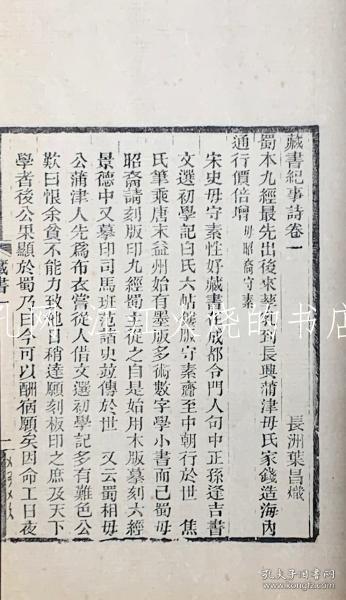 藏書紀事詩卷一
長洲葉昌熾
蜀本九經最先出後來孳到長興蒲津毋氏家錢造海內
通行價倍增 毋昭裔守素
宋史毋守素性好藏書在成都令門人句中正孫逢吉書
文選初學記白氏六帖鏤版守素齎至中朝行於世 焦
氏筆乘唐末益州始有墨版多術數字學小書而已蜀毋
昭裔請刻版印九經蜀主從之自是始用木版摹刻六經
景德中又摹印司馬班范諸史並傳於世 又云蜀相毋
公蒲津人先為布衣嘗從人借文選初學記多有難色公
歎曰恨余貧不能力致他日稍達願刻板印之庶及天下
學者後公果顯於蜀乃曰今可以酬宿願矣因命工日夜
藏書一
孔夫子旧书网